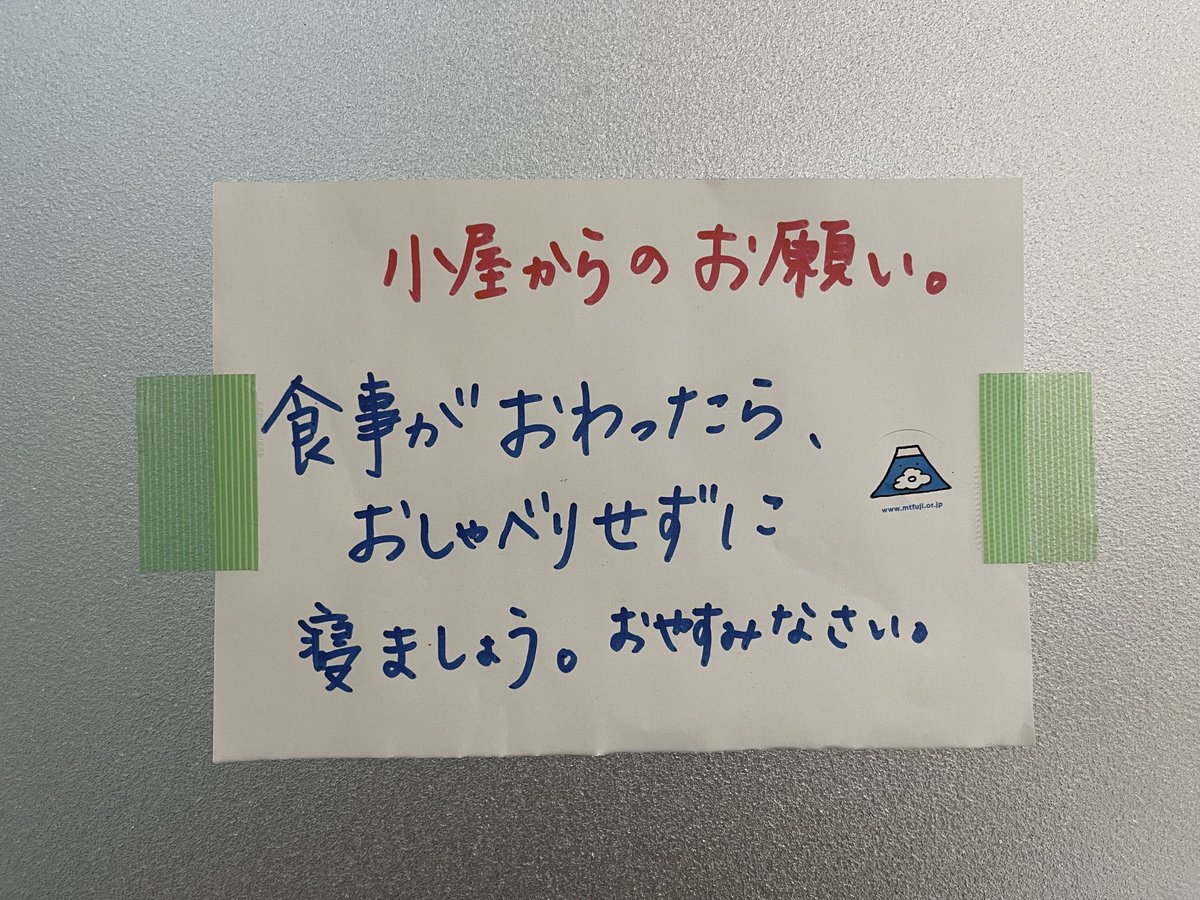 小屋からのお願い。
食事がおわったら、
おしゃべりせずに
寝ましょう。おやすみなさい。
www.mtfuji.or.jp